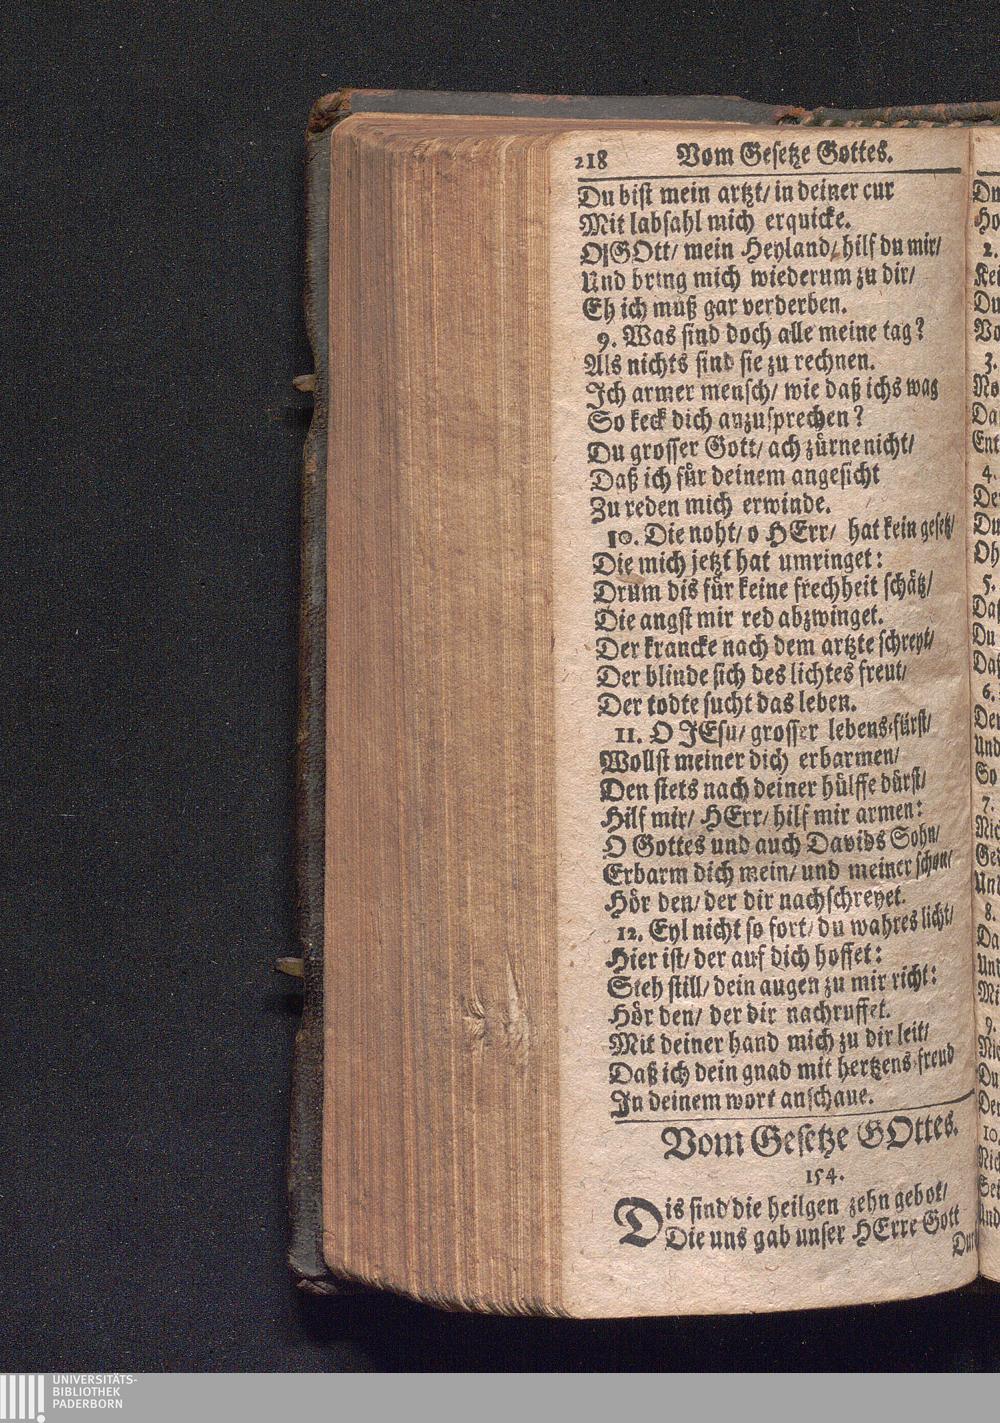 218 Vom Gesetze Gottes.
Du bist mein artzt/ in deiner cur
Mit labsahl mich erquicke.
O GOtt/ mein Heyland/ hilf du mir/
Und bring mich wiederum zu dir/
Eh ich muß gar verderben.
9. Was sind doch alle meine tag?
Als nichts sind sie zu rechnen.
Ich armer mensch/ wie daß ichs wag
So keck dich anzusprechen?
Du grosser Gott/ ach zürne nicht/
Daß ich für deinem angesicht
Zu reden mich erwinde.
10. Die noht/ o HErr/ hat kein gesetz/
Die mich jetzt hat umringet:
Drum dis für keine frechheit schätz/
Die angst mir red abzwinget.
Der krancke nach dem artzte schreyt/
Der blinde sich des lichtes freut/
Der todte sucht das leben.
11. O JEsu/ grosser lebens-fürst/
Wollst meiner dich erbarmen/
Den stets nach deiner hülffe dürst/
Hilf mir/ HErr/ hilf mir armen:
O Gottes und auch Davids Sohn/
Erbarm dich mein/ und meiner schon/
Hör den/ der dir nachschreyet.
12. Eyl nicht so fort/ du wahres licht/
Hier ist/ der auf dich hoffet:
Steh still/ dein augen zu mir richt:
Hör den/ der dir nachruffet.
Mit deiner hand mich zu dir leit/
Daß ich dein gnad mit hertzens-freud
In deinem wort anschaue.
Vom Gesetze GOttes.
154.
Dis sind die heilgen zehn gebot/
Die uns gab unser HErre Gott
Du
Ho
2.
Kei
Du
Vo
3.
No
Da
Ent
4.
De
Du
Oh
5.
Daß
Du
Daß
6.
Der
Und
So
7.
Nic
Ged
Und
8.
Da
Und
Mi
9.
Nic
Du
Der
10.
Nic
Sei
Und
UNIVERSITÄTS-
BIBLIOTHEK
PADERBORN